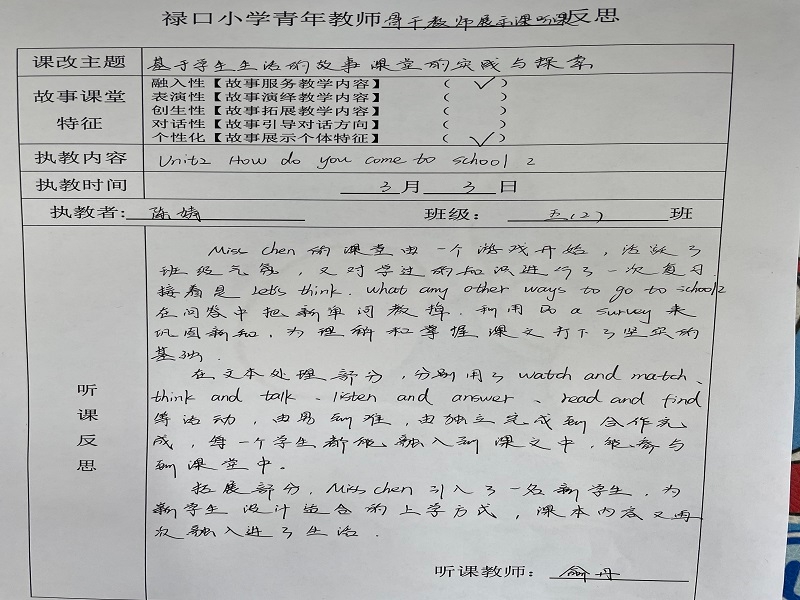 禄口小学青年教师骨干教师展示课听课反思
课改主题 基于学生生活的故事课堂的实践与探索
故事课堂特征
融入性【故事服务教学内容】 (✓)
表演性【故事演绎教学内容】 ( )
创生性【故事拓展教学内容】 ( )
对话性【故事引导对话方向】 ( )
个性化【故事展示个体特征】 (✓)
执教内容 Unit2 How do you come to school?
执教时间 3月3日
执教者: 陈婧 班级: 五(2) 班
听课反思
Miss Chen 的课堂由一个游戏开始,活跃了
班级气氛,又对学过的知识进行了一次复习.
接着是 Let's think. What any other ways to go to school?
在问答中把新单词教掉.利用 Do a survey 来
巩固新知,为理解和掌握课文打下了坚实的
基础.
在文本处理部分,分别用了 watch and match、
think and talk、listen and answer、read and find
等活动,由易到难,由独立完成到合作完
成,每一个学生都能融入到课文中,能参与
到课堂中。
拓展部分,Miss chen 引入了一名新学生,为
新学生设计适合的上学方式,课本内容又再一
次融入进了生活.
听课教师: 俞丹